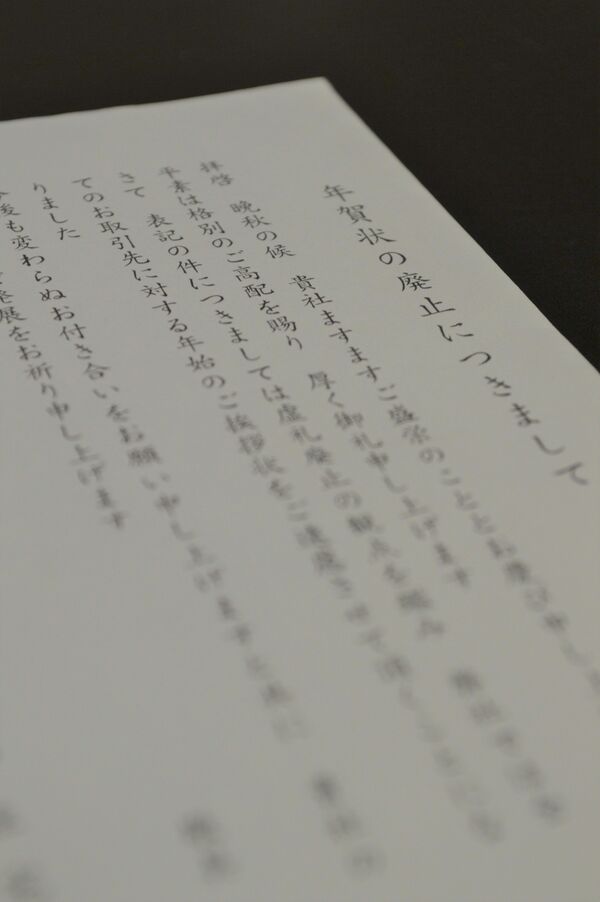 年賀状の廃止につきまして
拝啓 晩秋の候 貴社ますますご盛栄のこととお慶び申し
平素は格別のご高配を賜り 厚く御礼申し上げます
さて 表記の件につきましては虚礼廃止の観点を鑑み
てのお取引先に対する年始のご挨拶状をご遠慮させて頂くことにな
りました
後も変わらぬお付き合いをお願い申し上げますと共に
発展をお祈り申し上げます